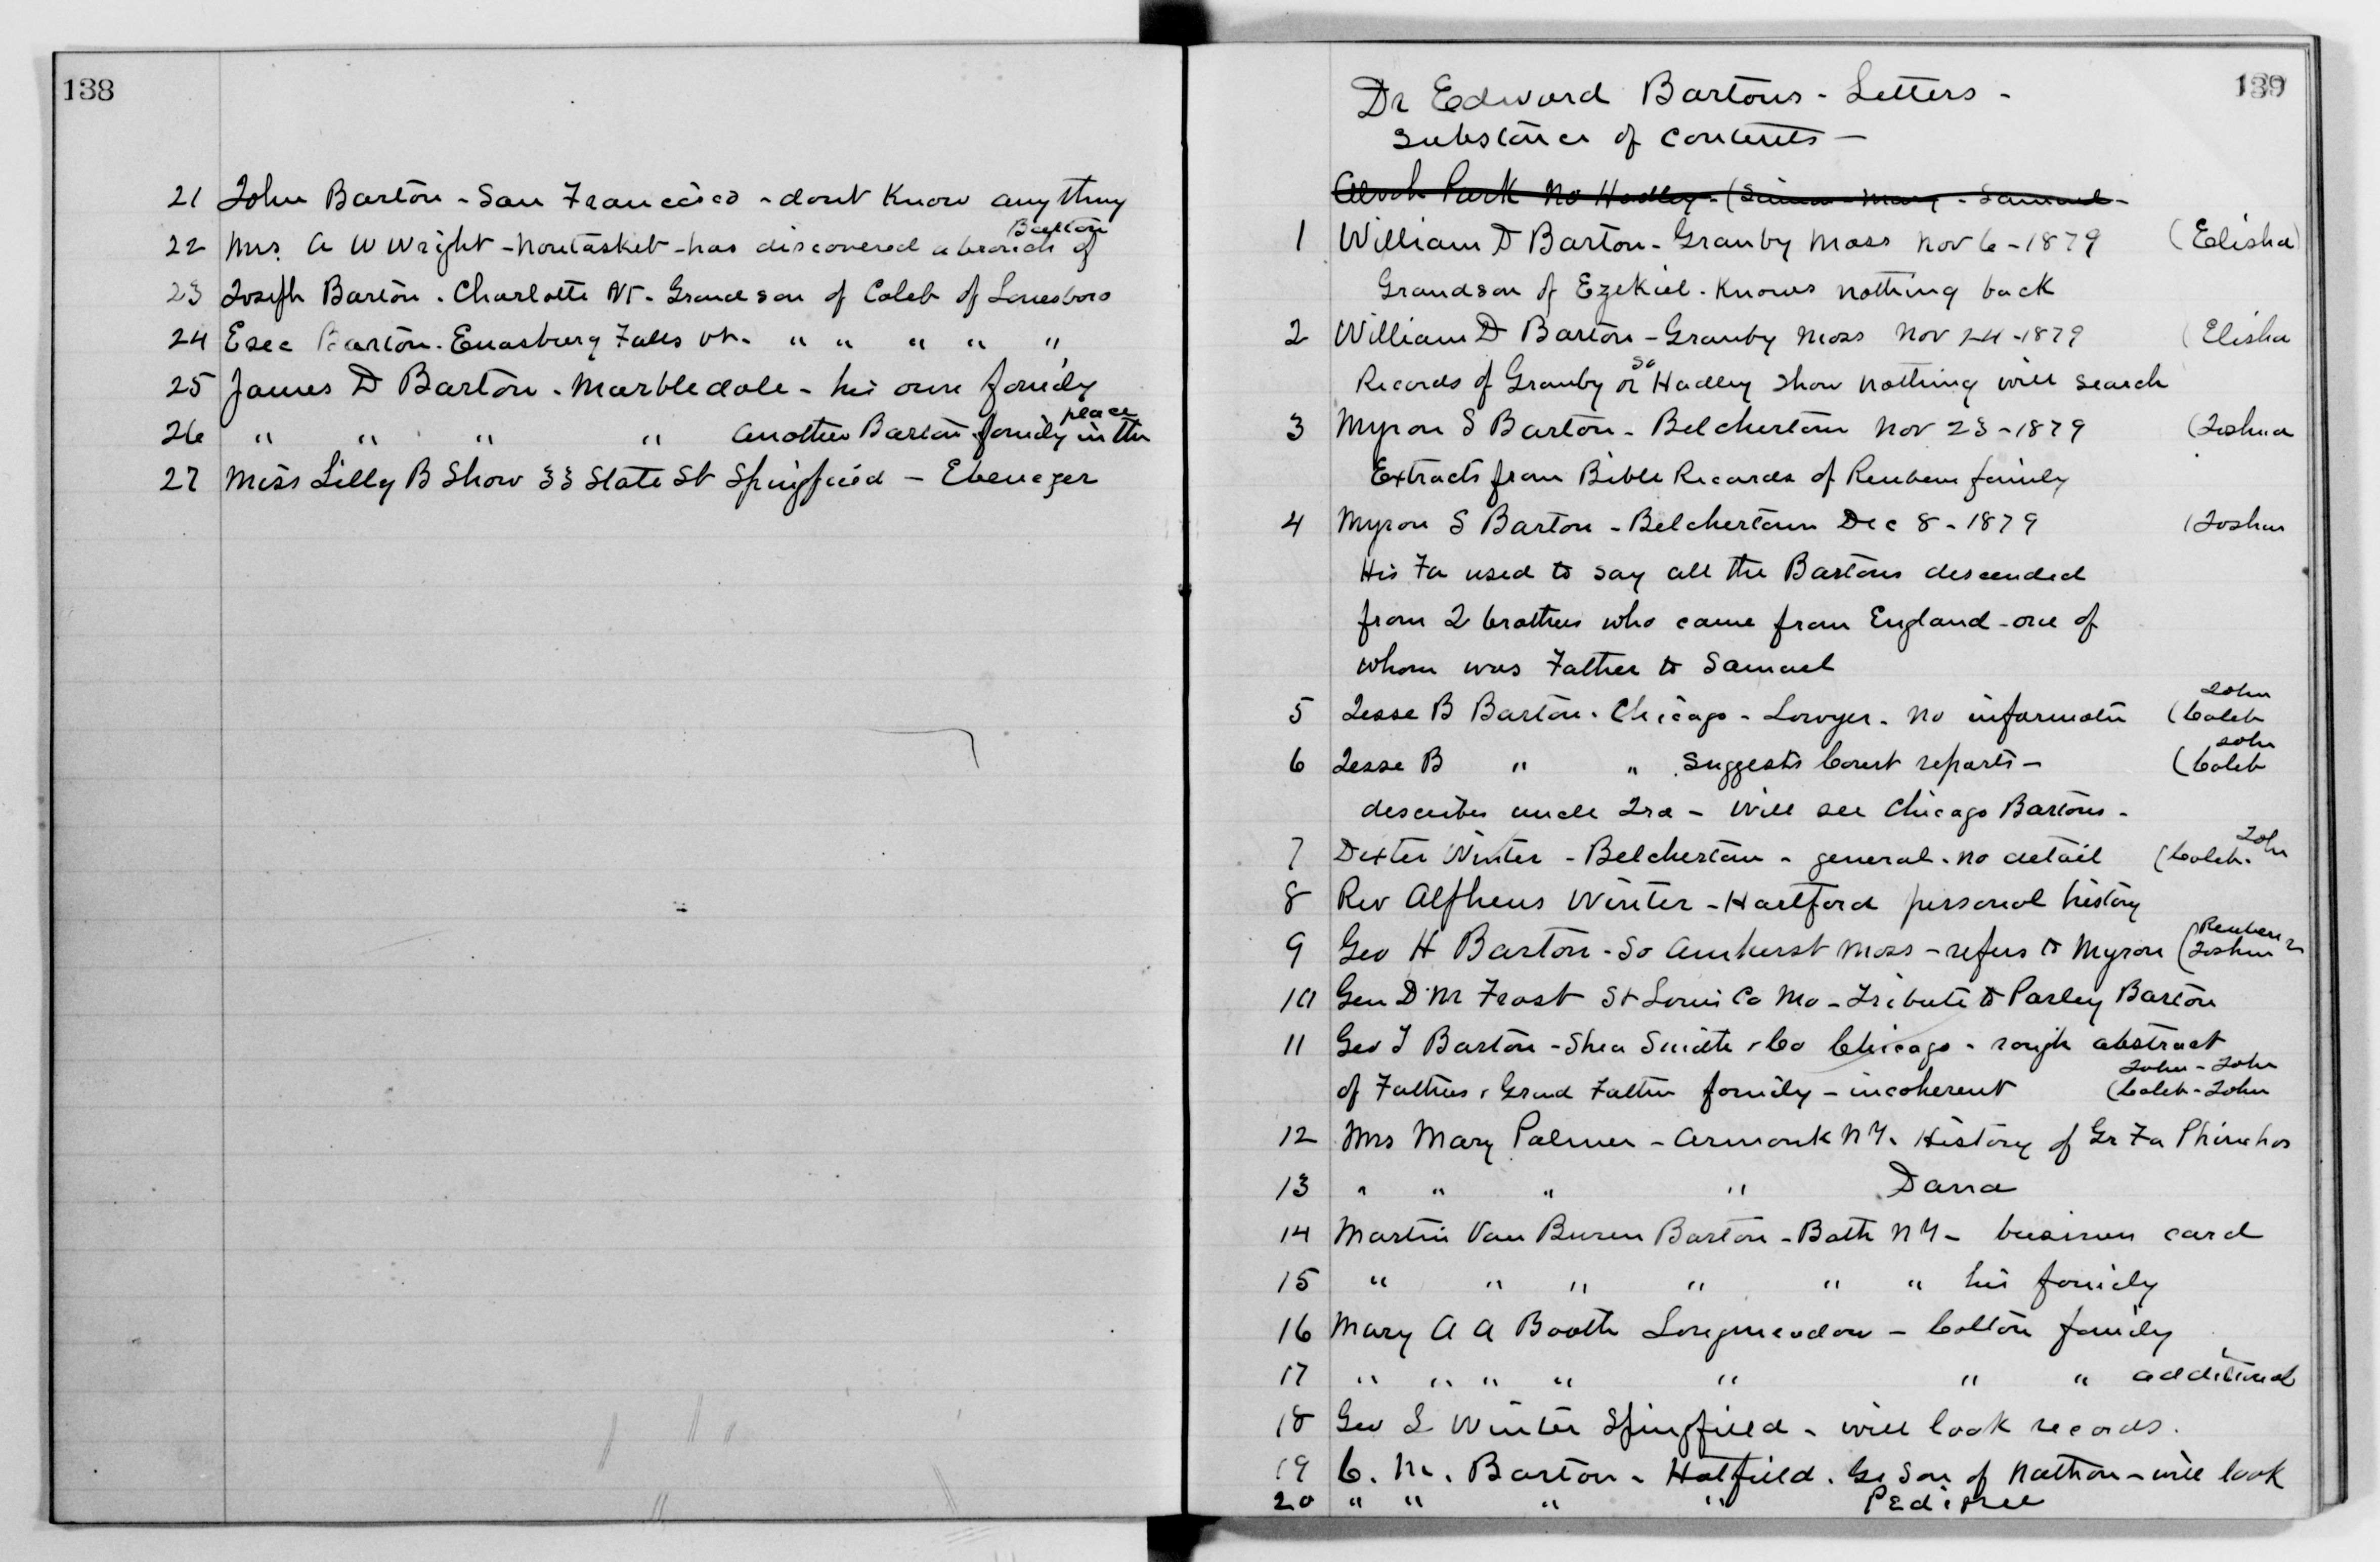 138
21 John Barton - San Francisco - dont know anything
22 Mrs. A W Wright - - has discovered a branch of Barton
23 Joseph Barton. Charlotte Vt. Grandson of Caleb of
24 Barton. Enosburg Falls Vt. " " " " "
25 James D Barton. Marbledale - his own family
26 " " " " Another Barton family in the place
27 Miss Lilly B Shaw 33 State St Springfield - Ebenezer
139
Dr Edward Bartons - Letters -
Substance of contents -
Park No Hadley - ( - Mary - Samuel -
1 William D Barton - Granby Mass Nov 6 - 1879 (Elisha)
Grandson of Ezekiel. Knows nothing back
2 William D Barton - Granby Mass Nov 24 - 1879 (Elisha
Records of Granby or So Hadley show nothing will search
3 Myron S Barton - Belchertown Nov 23 - 1879 (Joshua
Extracts from Bible Records of Reuben family
4 Myron S Barton - Belchertown Dec 8 - 1879 (Joshua
His Fa used to say all the Bartons descended
from 2 brothers who came from England - one of
whom was Father to Samuel
5 Jesse B Barton. Chicago - Lawyer. No information (Caleb John
6 Jesse B " " Suggests Court reports - (Caleb John
describes uncle Ira - Will see Chicago Bartons -
7 Dexter Winter - Belchertown - general. no detail (Caleb. John
8 Rev Alpheus Winter - Hartford personal history
9 Geo H Barton - So Amherst Mass - refers to Myron (Reuben Joshua 2
10 Gen D M Frost St Louis Co Mo - Tribute to Parley Barton
11 Geo T Barton - Shea Smith & Co Chicago - rough abstract
of Fathers & Grand Father family - incoherent (Caleb - John John - John
12 Mrs Mary Palmer - Armonk N Y. History of Gr Fa Phinehas
13 " " " " Dana
14 Martin Van Buren Barton - Bath N Y - business card
15 " " " " " " his family
16 Mary A A Booth Longmeadow - Colton family
17 " " " " " " " additional
18 Geo S Winter Springfield - will look records.
19 C. M. Barton - Hatfield. Gr Son of Nathan - will look
20 " " " " Pedigree